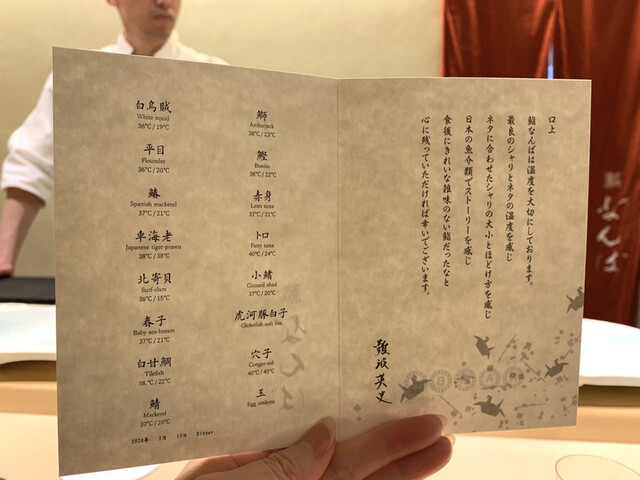 白烏賊
White squid
36℃ / 19℃
平目
Flounder
36℃ / 20℃
鰆
Spanish mackerel
37℃ / 21℃
車海老
Japanese tiger-prawn
38℃ / 38℃
北寄貝
Surf-clam
36℃ / 15℃
春子
Baby sea-bream
37℃ / 21℃
白甘鯛
Tilefish
38℃ / 22℃
鯖
Mackerel
37℃ / 20℃
鰤
Amberjack
38℃ / 23℃
鰹
Bonito
38℃ / 22℃
赤身
Lean tuna
37℃ / 21℃
トロ
Fatty tuna
40℃ / 24℃
小鰭
Gizzard shad
37℃ / 20℃
虎河豚白子
Globefish soft roe
穴子
Conger-eel
40℃ / 45℃
玉
Egg omlette
Dinner
口上
鮨なんばは温度を大切にしております。
最良のシャリとネタの温度を感じ
ネタに合わせたシャリの大小とほどけ方を感じ
日本の魚介類でストーリーを感じ
食後にきれいな雑味のない鮨だったなと
心に残っていただければ幸いでございます。
難波英史
鮨
なんば